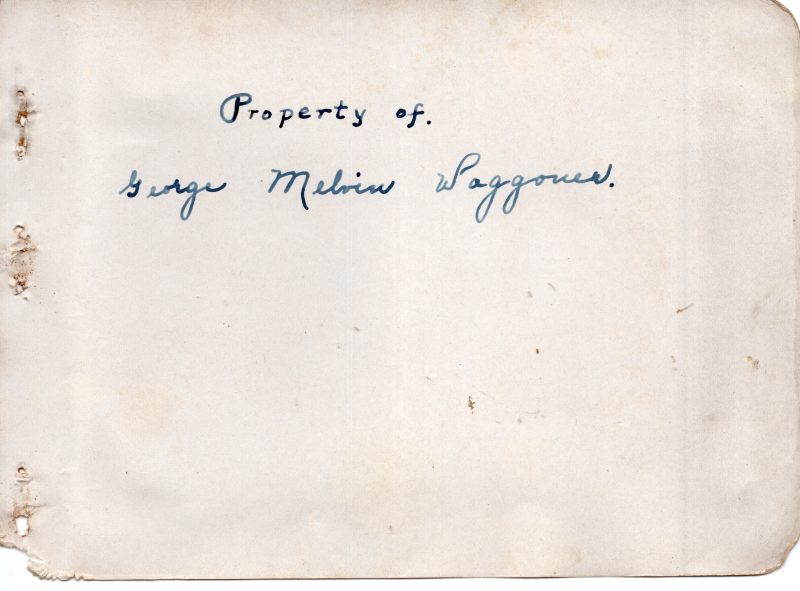 Property of.
George Melvin Waggoner.